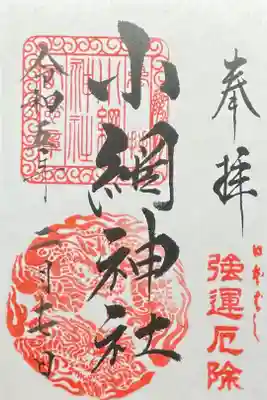 奉拝
日本ばし
強運厄除
小網神社
令和五年二月七日